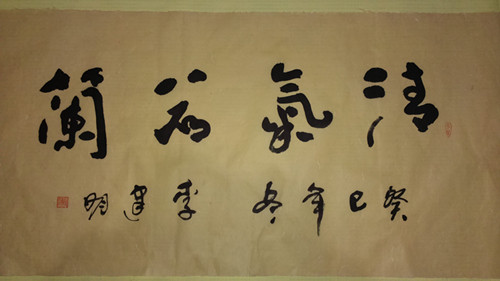 清氣若蘭
癸巳年冬 李建明